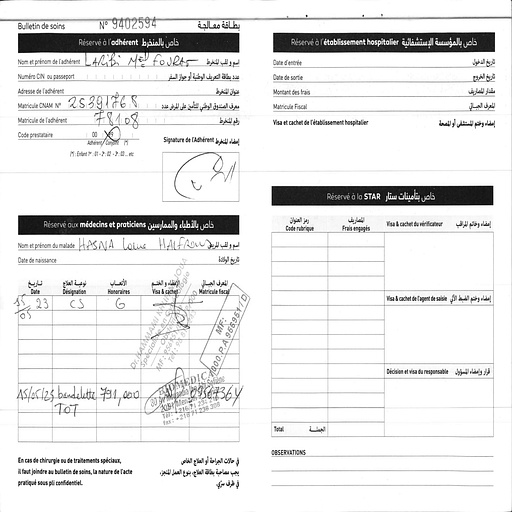 Bulletin de soins N° 9402594 بطاقة معالجة
Réservé à l'adhérent خاص بالمنخرط
Nom et prénom de l'adhérent LARIBI Med FOURAS إسم و لقب المنخرط
Numéro CIN ou passeport عدد بطاقة التعريف الوطنية أو جواز السفر
Adresse de l'adhérent عنوان المنخرط
Matricule CNAM N° 25391768
Matricule de l'adhérent 78108 رقم المنخرط
Code prestataire 00
Adhérent Conjoint (*)
(*) : Enfant 1er : 01 - 2e : 02 - 3e : 03 ... etc
Signature de l'Adhérent إمضاء المنخرط
Réservé aux médecins et praticiens خاص بالأطباء والممارسين
Nom et prénom du malade HASNA إسم و لقب المريض
Date de naissance تاريخ الولادة
تاريخ نوعية العلاج الأتعاب الإمضاء و الختم المعرف الجبائي
Date Désignation Honoraires Visa & cachet Matricule fiscal
15/05 23 CS G
MF:
000.P.A 9669651 D
15/05/23 bandelette 791,000
TOT
En cas de chirurgie ou de traitements spéciaux,
il faut joindre au bulletin de soins, la nature de l'acte
pratiqué sous pli confidentiel.
في حالات الجراحة أو العلاج الخاص
يجب مصاحبة بطاقة العلاج، بنوع العمل المنجز،
في ظرف سري.
Réservé à l'établissement hospitalier خاص بالمؤسسة الإستشفائية
Date d'entrée تاريخ الدخول
Date de sortie تاريخ الخروج
Montant des frais مقدار المصاريف
Matricule Fiscal المعرف الجبائي
Visa et cachet de l'établissement hospitalier إمضاء وختم المستشفى أو المصحة
Réservé à la STAR خاص بتأمينات ستار
رمز العنوان المصاريف
Code rubrique Frais engagés
Visa & cachet du vérificateur إمضاء وخاتم المراقب
Visa & cachet de l'agent de saisie
Décision et visa du responsable قرار وإمضاء المسؤول
Total الجملة
OBSERVATIONS